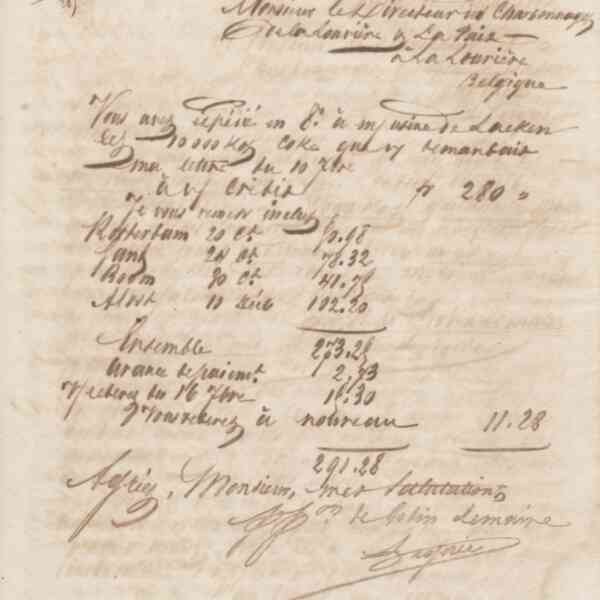 Monsieur le Directeur des Charbonnages
de la Louvière & La Paix
à La Louvière
Belgique
Vous avez expédié en Gre à m/ usine de Laeken
les 10 000 kos coke que vs demandait
ma lettre du 10 7bre
à v/ crédit fr 280 "
je vous remets inclus
Rotterdam 20 ct
Gand 24 ct 78.32
Boom 30 ct
Alost 10 102.20
Ensemble 273.25
avance de paiemt 2.73
du 16 7bre 15.30
Vous redevez à nouveau 11.28
291.28
Agréez, Monsieur, mes salutations
de Colin Lemaire